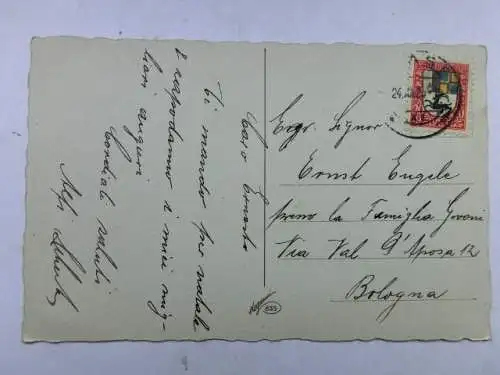 Caro Ernesto
Ti mando per natale
e capodanno i miei mig-
liori auguri
Cordiali saluti
Egr. Signor
Ernst Engele
presso la Famiglia Govoni
Via Val D'Aposa 12
Bologna
24.
853